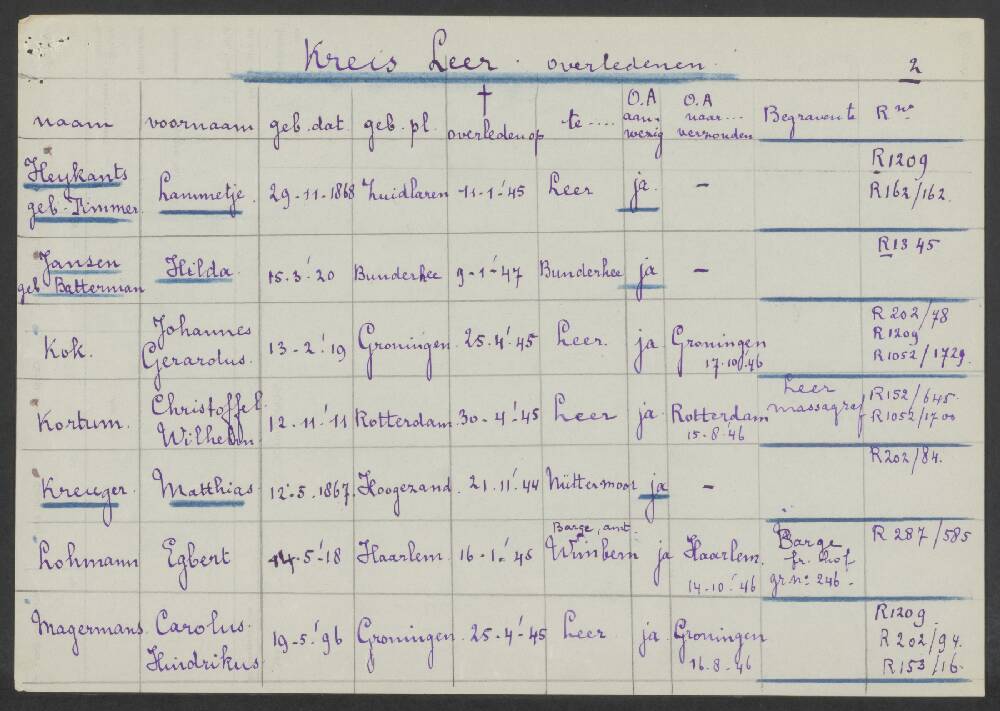 Kreis Leer. overledenen. 2
naam voornaam geb. dat. geb. pl. † overleden op te .... O.A aan-wezig O.A naar... verzonden Begraven te R no
Heykants geb. Timmer. Lammetje. 29-11-1868 Zuidlaren 11-1-'45 Leer ja. – R1209 R162/162.
Jansen geb. Batterman Hilda. 15.3.'20 Bunderhee 9-1-'47 Bunderhee ja – R1345
Kok. Johannes Gerardus. 13-2.'19 Groningen. 25.4.'45 Leer. ja Groningen 17.10.'46 R202/78 R1209 R1052/1729.
Kortum. Christoffel Wilhelm 12.11.'11 Rotterdam 30-4.'45 Leer ja Rotterdam 15-8.'46 Leer massagraf R152/645. R1052/1700
Kreuger. Matthias 12.5.1867. Hoogezand. 21.11.'44 Nüttermoor ja – R202/84.
Lohmann Egbert 14.5.'18 Haarlem. 16-1.'45 Barge, amt. ja Haarlem. 14.10.'46 Barge fr. Hof gr no 246. R 287/585
Magermans. Carolus. Hindrikus 19-5.'96 Groningen 25-4-'45 Leer ja Groningen 16.8.-46 R1209. R202/94. R153/16.